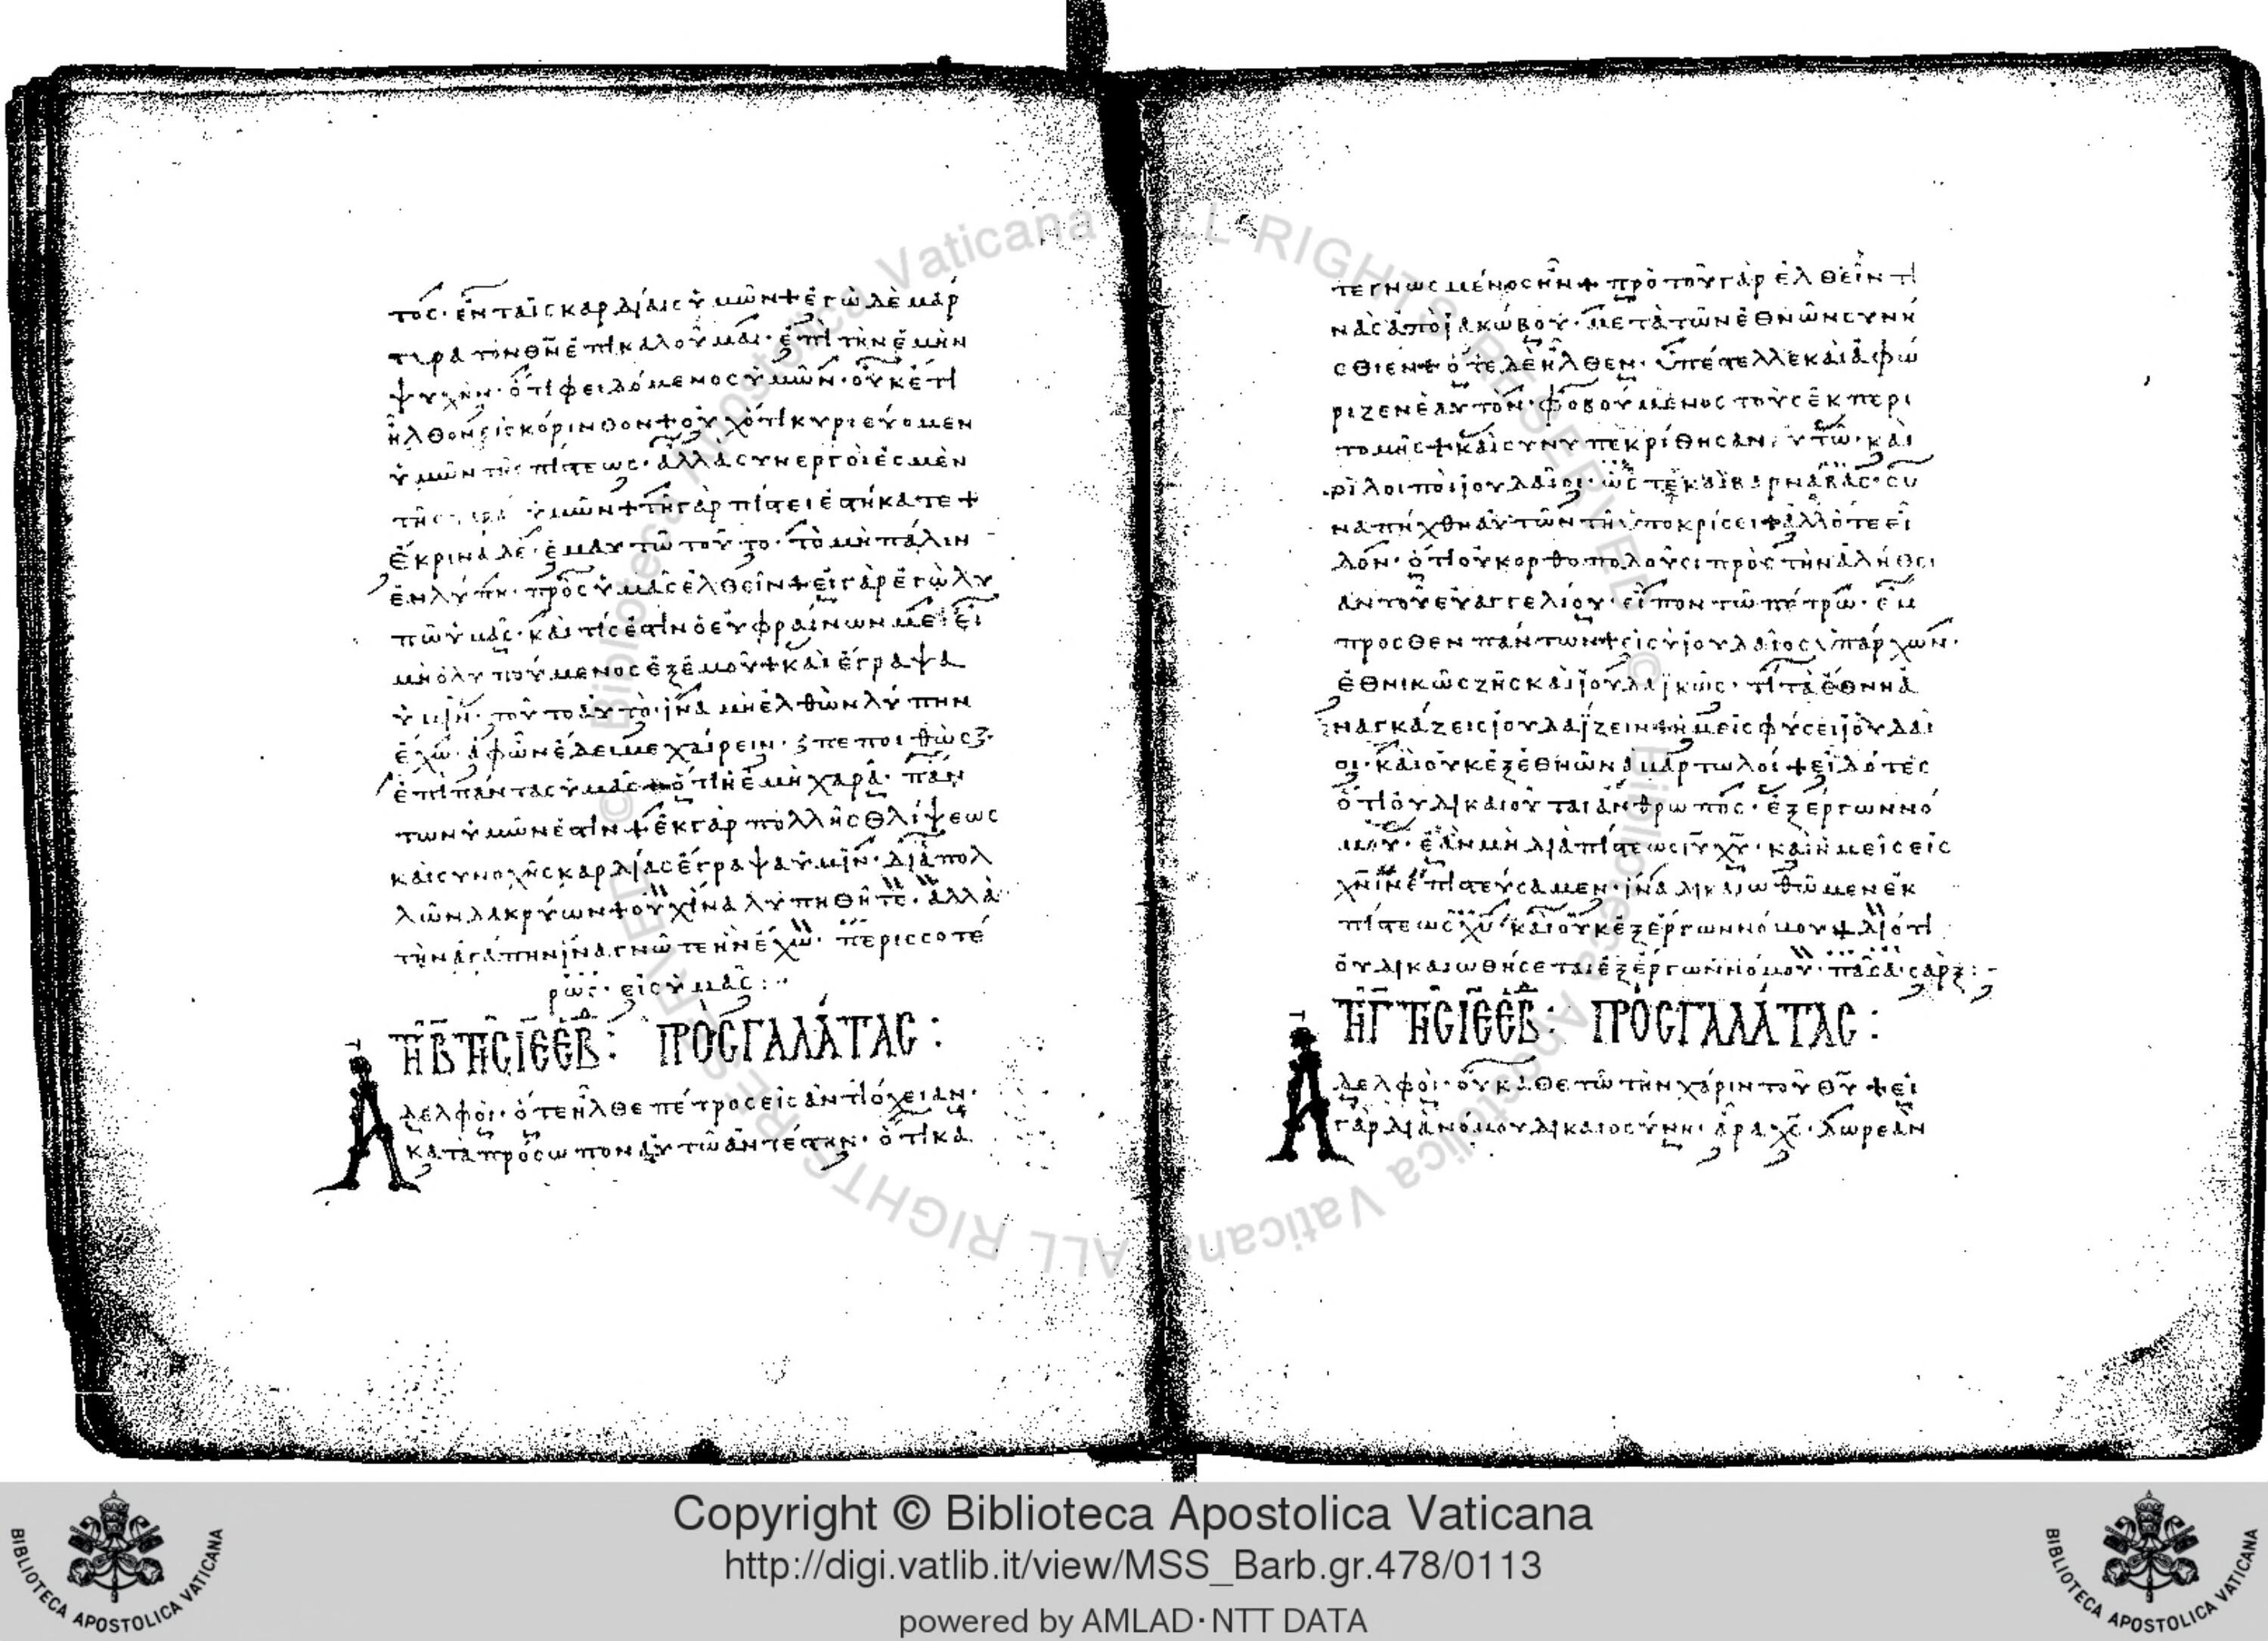 τος· ἐν ταῖς καρδίαις ὑμῶν + ἐγὼ δὲ μάρ
τυρα τὸν θν ἐπικαλοῦμαι· ἐπὶ τὴν ἐμὴν
ψυχήν· ὅτι φειδόμενος ὑμῶν· οὐκέτι
ἦλθον εἰς κόρινθον + οὐχ ὅτι κυριεύομεν
ὑμῶν τῆς πίστεως· ἀλλὰ συνεργοὶ ἐσμὲν
τῆς χαρᾶς ὑμῶν + τῇ γὰρ πίστει ἑστήκατε +
ἔκρινα δὲ ἐμαυτῷ τοῦτο· τὸ μὴ πάλιν
ἐν λύπῃ· πρὸς ὑμᾶς ἐλθεῖν + εἰ γὰρ ἐγὼ λυ
πῶ ὑμᾶς· καὶ τίς ἐστὶν ὁ εὐφραίνων με· εἰ
μὴ ὁ λυπούμενος ἐξ ἐμοῦ + καὶ ἔγραψα
ὑμῖν· τοῦτο αὐτὸ· ἵνα μὴ ἐλθὼν λύπην
ἔχω· ἀφ ὧν ἔδει με χαίρειν· πεποιθὼς
ἐπὶ πάντας ὑμᾶς + ὅτι ἡ ἐμὴ χαρὰ· πάν
των ὑμῶν ἐστὶν + ἐκ γὰρ πολλῆς θλίψεως
καὶ συνοχῆς καρδίας ἔγραψα ὑμῖν· διὰ πολ
λῶν δακρύων + οὐχ ἵνα λυπηθῆτε· ἀλλὰ
τὴν ἀγάπην ἵνα γνῶτε ἣν ἔχω· περισσοτέ
ρως· εἰς ὑμᾶς :
ΠΡΟΣ ΓΑΛΑΤΑΣ :
Ἀδελφοὶ· ὅτε ἦλθε πέτρος εἰς ἀντιόχειαν·
κατὰ πρόσωπον αὐτῷ ἀντέστην· ὅτι κα
τεγνωσμένος ἦν + πρὸ τοῦ γὰρ ἐλθεῖν τι
νὰς ἀπὸ ἰακώβου· μετὰ τῶν ἐθνῶν συνή
σθιεν + ὅτε δὲ ἦλθεν· ὑπέστελλε καὶ ἀφώ
ριζεν ἑαυτὸν· φοβούμενος τοὺς ἐκ περι
τομῆς + καὶ συνυπεκρίθησαν αὐτῷ· καὶ οἱ
λοιποὶ ἰουδαῖοι· ὥς τε καὶ βαρνάβας· συ
ναπήχθη αὐτῶν τῇ ὑποκρίσει + ἀλλ ὅτε εἶ
δον· ὅτι οὐκ ὀρθοποδοῦσι πρὸς τὴν ἀλήθει
αν τοῦ εὐαγγελίου· εἶπον τῷ πέτρῳ· ἔμ
προσθεν πάντων + εἰ σὺ ἰουδαῖος ὑπάρχων·
ἐθνικῶς ζῇς καὶ ἰουδαϊκῶς· τί τὰ ἔθνη ἀ
ναγκάζεις ἰουδαΐζειν + ἡμεῖς φύσει ἰουδαῖ
οι· καὶ οὐκ ἐξ ἐθνῶν ἁμαρτωλοί + εἰδότες
ὅτι οὐ δικαιοῦται ἄνθρωπος· ἐξ ἔργων νό
μου· ἐὰν μὴ διὰ πίστεως ιυ χυ· καὶ ἡμεῖς εἰς
χν ιν ἐπιστεύσαμεν· ἵνα δικαιωθῶμεν ἐκ
πίστεως χυ· καὶ οὐκ ἐξ ἔργων νόμου + διότι
οὐ δικαιωθήσεται ἐξ ἔργων νόμου· πᾶσα σάρξ :
ΠΡΟΣ ΓΑΛΑΤΑΣ :
Ἀδελφοὶ· οὐκ ἀθετῶ τὴν χάριν τοῦ θυ + εἰ
γὰρ διὰ νόμου δικαιοσύνη· ἄρα χς· δωρεὰν
Copyright © Biblioteca Apostolica Vaticana
http://digi.vatlib.it/view/MSS_Barb.gr.478/0113
powered by AMLAD·NTT DATA
BIBLIOTECA APOSTOLICA VATICANA
BIBLIOTECA APOSTOLICA VATICANA